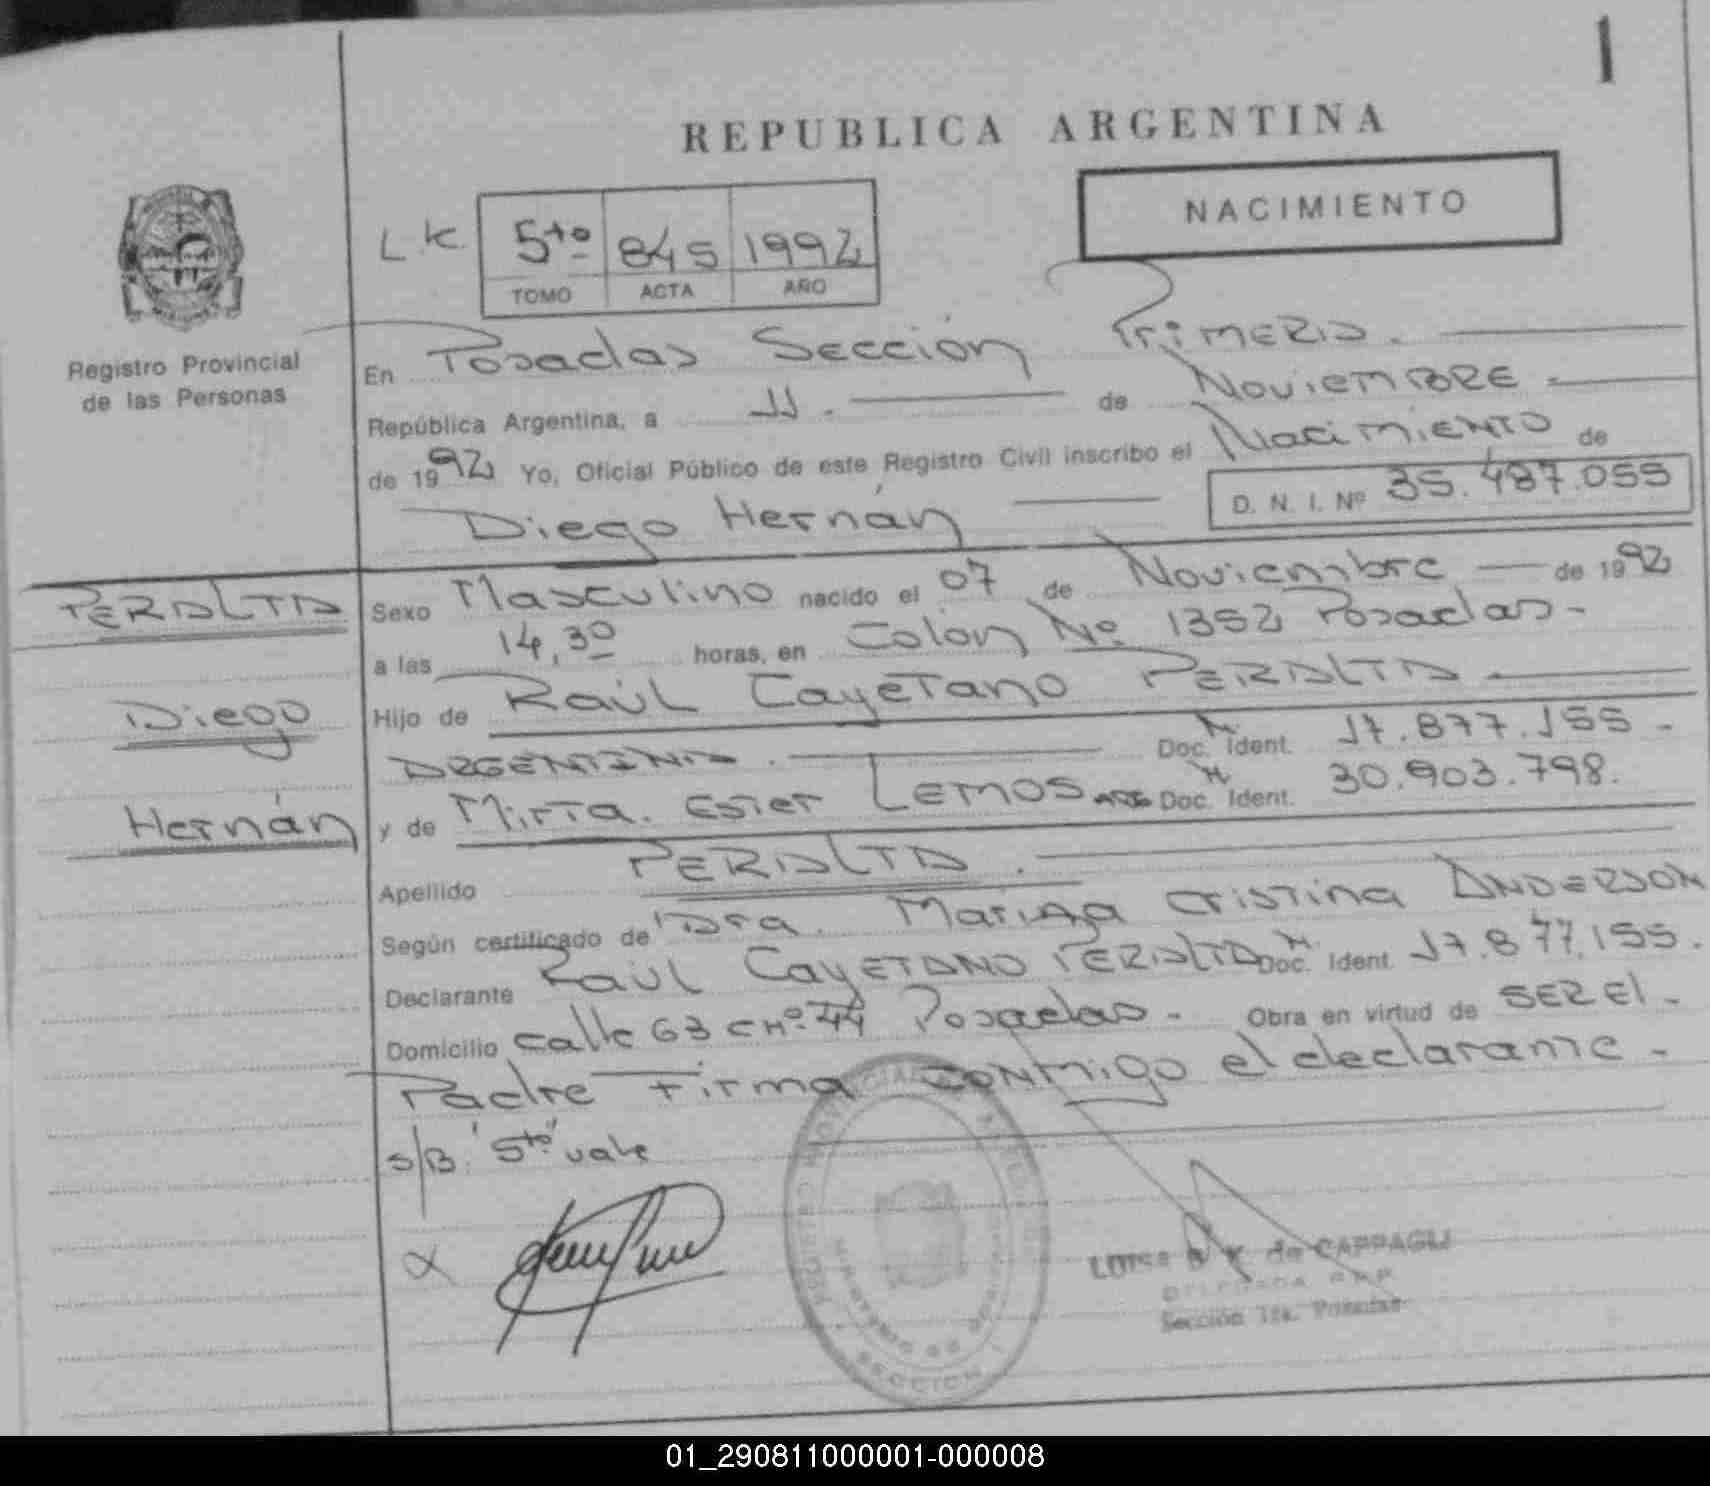 1
REPUBLICA ARGENTINA
NACIMIENTO
L.K. 5to 845 1992
TOMO ACTA AÑO
Registro Provincial
de las Personas
En Posadas Sección Primera.
República Argentina, a 11. de Noviembre
de 1992 Yo, Oficial Público de este Registro Civil inscribo el Nacimiento de
Diego Hernán D. N. I. Nº 35.487.055
PERALTA
Diego
Hernán
Sexo Masculino nacido el 07 de Noviembre de 1992
a las 14,30 horas, en Colon Nº 1352 Posadas-
Hijo de Raúl Cayetano PERALTA
ARGENTINA. Doc. Ident. 17.877.155.-
y de Mirta. Ester LEMOS ARG Doc. Ident. 30.903.798.
Apellido PERALTA.
Según certificado de Dra. Marina Cristina ANDERSON
Declarante Raúl Cayetano PERALTA Doc. Ident. 17.877.155.
Domicilio calle 63 CHº 44 Posadas. Obra en virtud de SER El
Padre Firma conmigo el declarante-
S/B "5to" vale
LUISA K. de CAPPAGLI
DELEGADA R P P
Sección 1ra. Posadas
SECCION 1
01_290811000001-000008